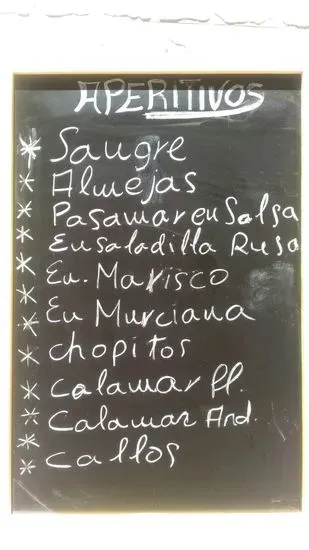 APERITIVOS
* Sangre
* Almejas
* Pasamar en Salsa
* Ensaladilla Rusa
* En. Marisco
* En Murciana
* Chopitos
* Calamar Pl.
* Calamar And.
* Callos